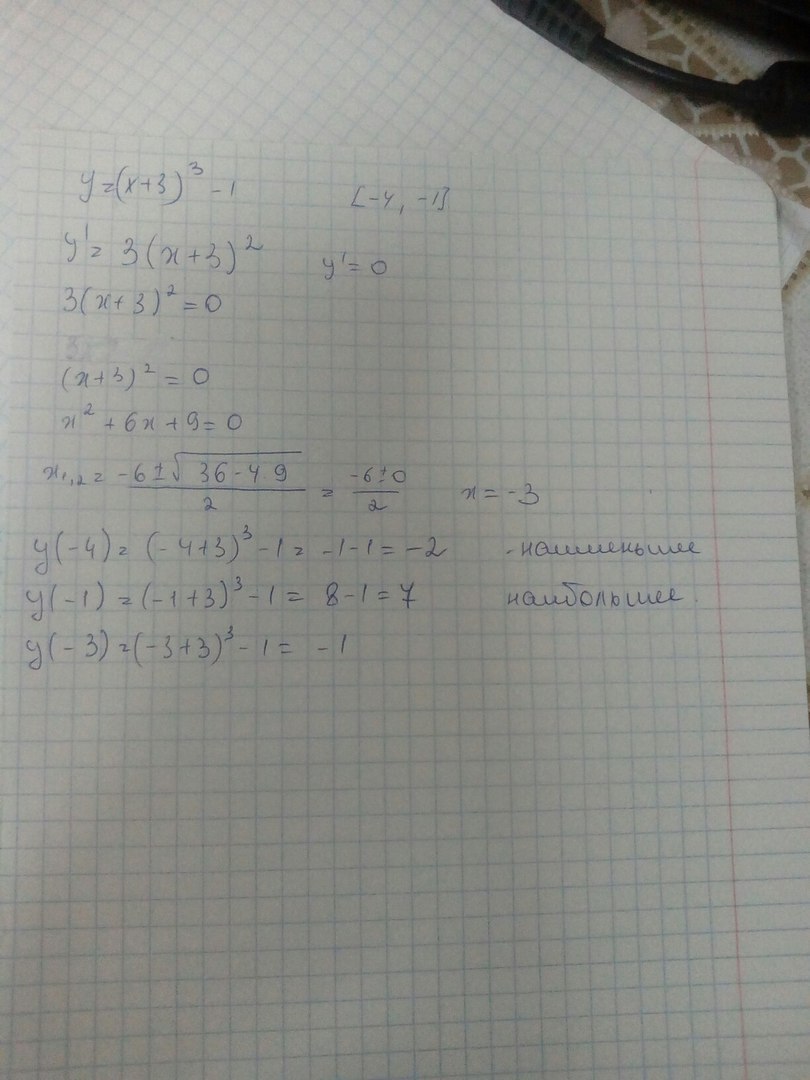 y=(x+3)³-1 [-4, -1]
y'= 3(x+3)² y'=0
3(x+3)²=0
(x+3)²=0
x²+6x+9=0
x₁,₂= -6±√36-4·9 / 2 = -6±0 / 2 x=-3
y(-4)=(-4+3)³-1= -1-1=-2 -наименьшее
y(-1)=(-1+3)³-1= 8-1=7 наибольшее
y(-3)=(-3+3)³-1= -1